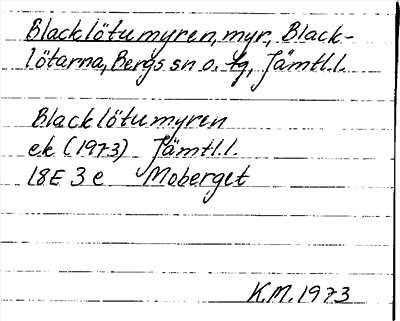 Blacklötumyren, myr, Black-
lötarna, Bergs sn o. tg, Jämtl. l.
Blacklötumyren
ek (1973) Jämtl. l.
18E 3e Moberget
K.M. 1973